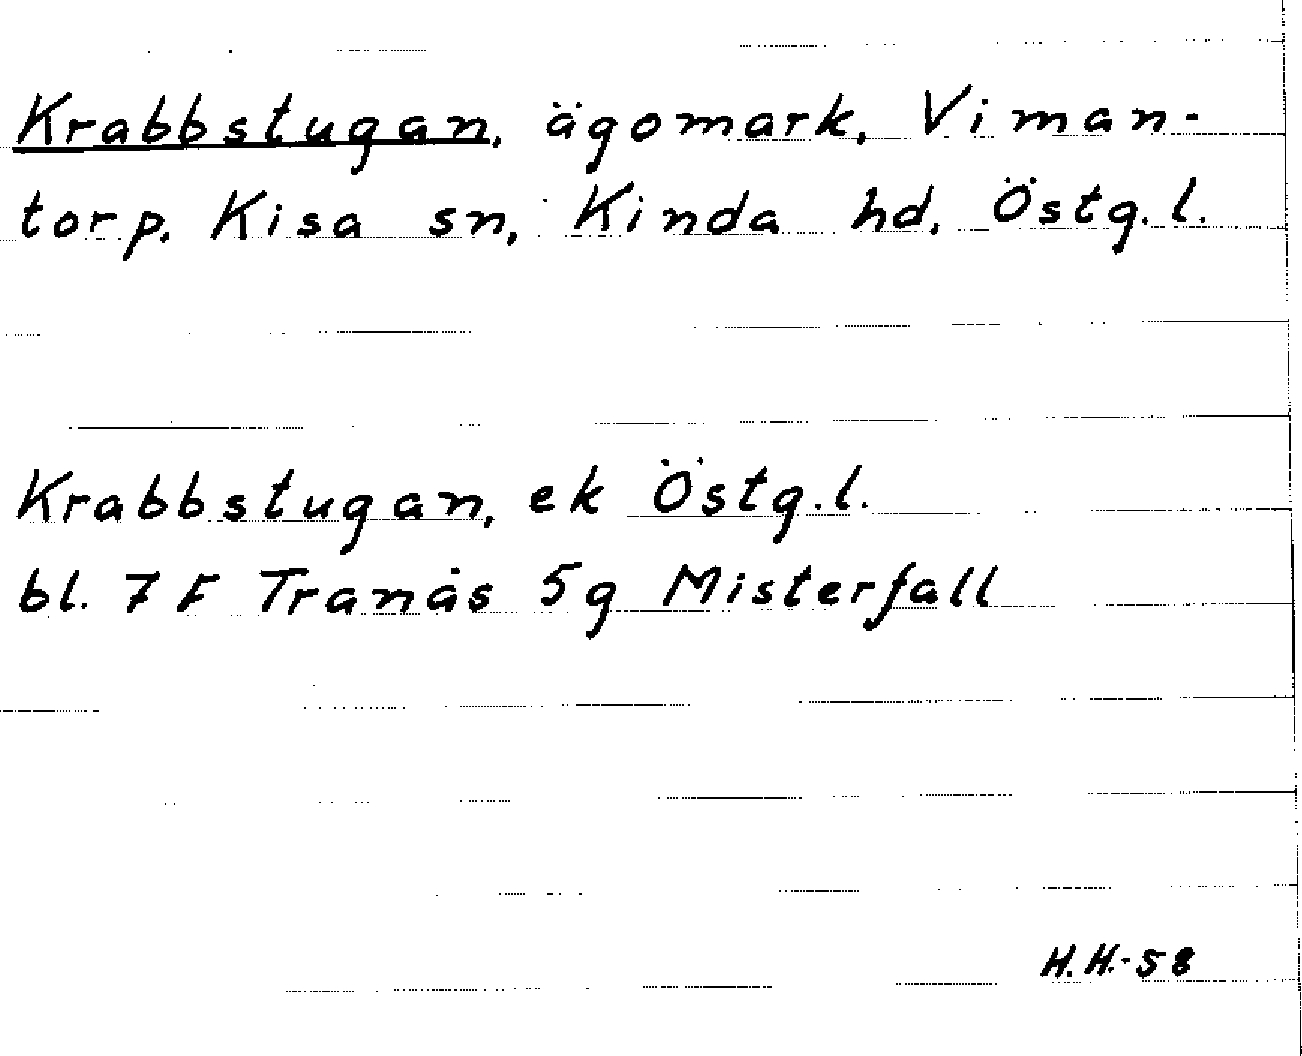 Krabbstugan, ägomark, Viman-
torp, Kisa sn, Kinda hd, Östg.l.
Krabbstugan, ek Östg.l.
bl. 7 F Tranås 5g Misterfall
H.H.-58